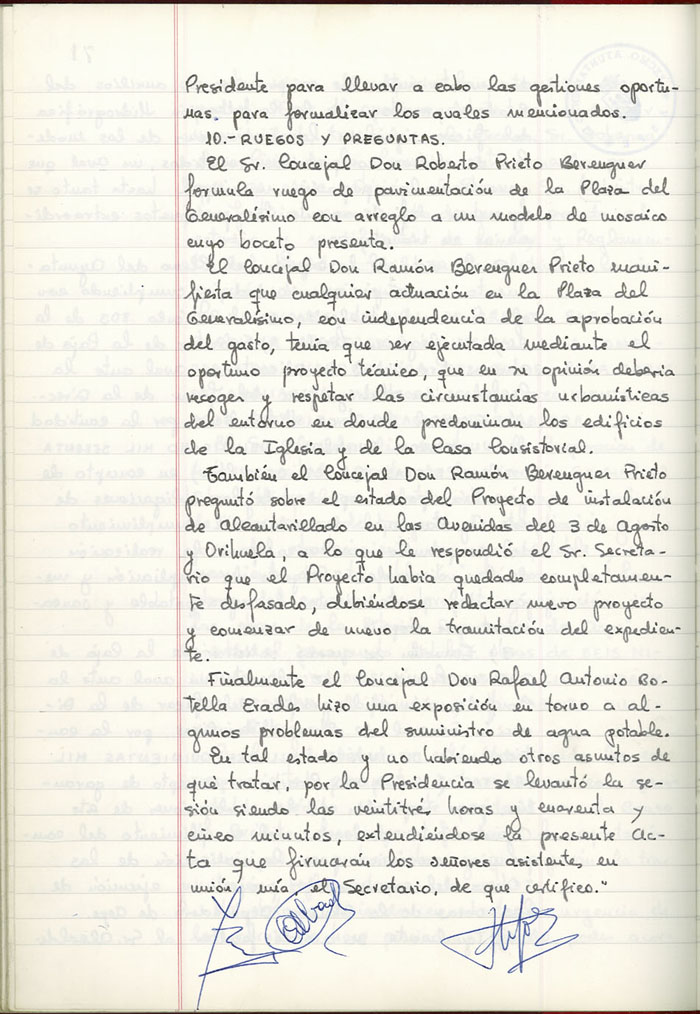 Presidente para llevar a cabo las gestiones oportu-
nas. para formalizar los avales mencionados.
10.- RUEGOS Y PREGUNTAS.
El Sr. Concejal Don Roberto Prieto Berenguer
formula ruego de pavimentación de la Plaza del
Generalísimo con arreglo a un modelo de mosaico
cuyo boceto presenta.
El Concejal Don Ramón Berenguer Prieto mani-
fiesta que cualquier actuación en la Plaza del
Generalísimo, con independencia de la aprobación
del gasto, tenía que ser ejecutada mediante el
oportuno proyecto técnico, que en su opinión debería
recoger y respetar las circunstancias urbanísticas
del entorno en donde predominan los edificios
de la Iglesia y de la Casa Consistorial.
También el Concejal Don Ramón Berenguer Prieto
preguntó sobre el estado del Proyecto de instalación
de Alcantarillado en las Avenidas del 3 de Agosto
y Orihuela, a lo que le respondió el Sr. Secreta-
rio que el Proyecto había quedado completamen-
te desfasado, debiéndose redactar nuevo proyecto
y comenzar de nuevo la tramitación del expedien-
te.
Finalmente el Concejal Don Rafael Antonio Bo-
tella Erades hizo una exposición en torno a al-
gunos problemas del suministro de agua potable.
En tal estado y no habiendo otros asuntos de
que tratar, por la Presidencia se levantó la se-
sión siendo las veintitres horas y cuarenta y
cinco minutos, extendiéndose la presente Ac-
ta que firmarán los señores asistentes, en
unión mía, el Secretario, de que certifico."